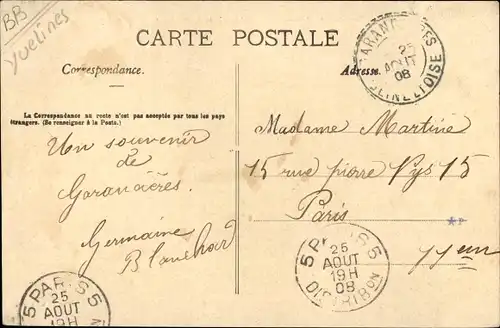 BB
Yvelines
CARTE POSTALE
Correspondance.
Adresse.
La Correspondance au recto n'est pas acceptée par tous les pays
étrangers. (Se renseigner à la Poste.)
Un souvenir
de
Garancières.
Germaine
Blanchard
Madame Martine
15 rue pierre Nys 15
Paris
25
AOUT
08
SEINE ET OISE
5 PARIS 5
25
AOUT
19H
08
DISTRIBON
5 PARIS 5
25
AOUT
19H